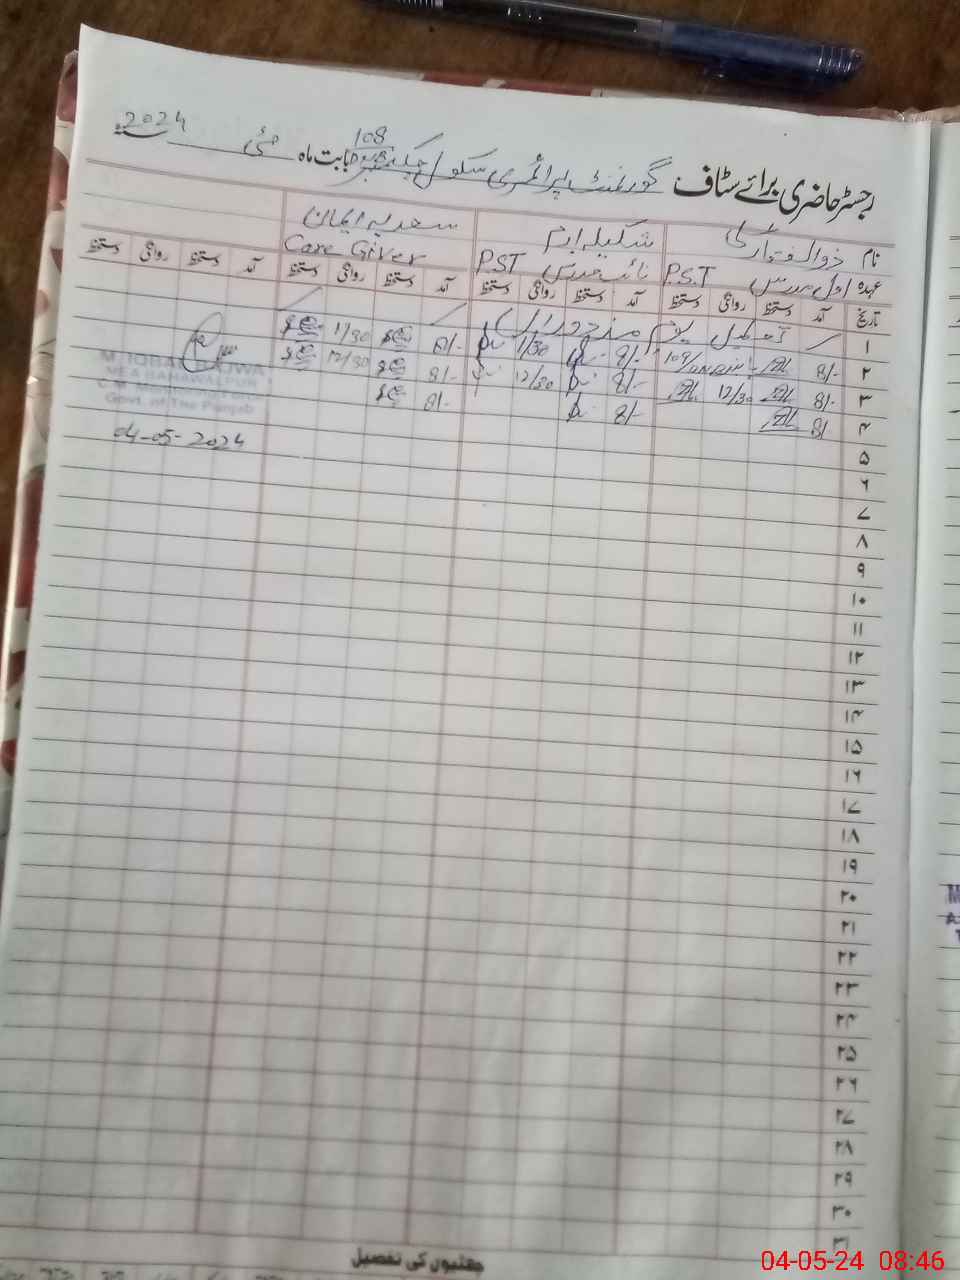 رجسٹر حاضری برائے سٹاف گورنمنٹ پرائمری سکول چک نمبر 108 بابت ماہ مئی سنہ 2024
نام ذوالفقار علی شکیلہ ارم سعدیہ ایمان
عہدہ اول مدرس P.S.T نائب مدرس P.ST Care Giver
تاریخ آمد دستخط روانگی دستخط آمد دستخط روانگی دستخط آمد دستخط روانگی دستخط آمد دستخط روانگی دستخط
۱ تعطیل یوم مزدوراں
۲ 8/- 8/- 1/30 8/- 1/30
۳ 8/- 12/30 8/- 12/30 8/- 12/30
۴ 8/ 8/- 8/-
M. IQBAL BAJWA
MEA BAHAWALPUR
Govt. of The Punjab
04-05-2024
۵
۶
۷
۸
۹
۱۰
۱۱
۱۲
۱۳
۱۴
۱۵
۱۶
۱۷
۱۸
۱۹
۲۰
۲۱
۲۲
۲۳
۲۴
۲۵
۲۶
۲۷
۲۸
۲۹
۳۰
۳۱
چھٹیوں کی تفصیل
04-05-24 08:46